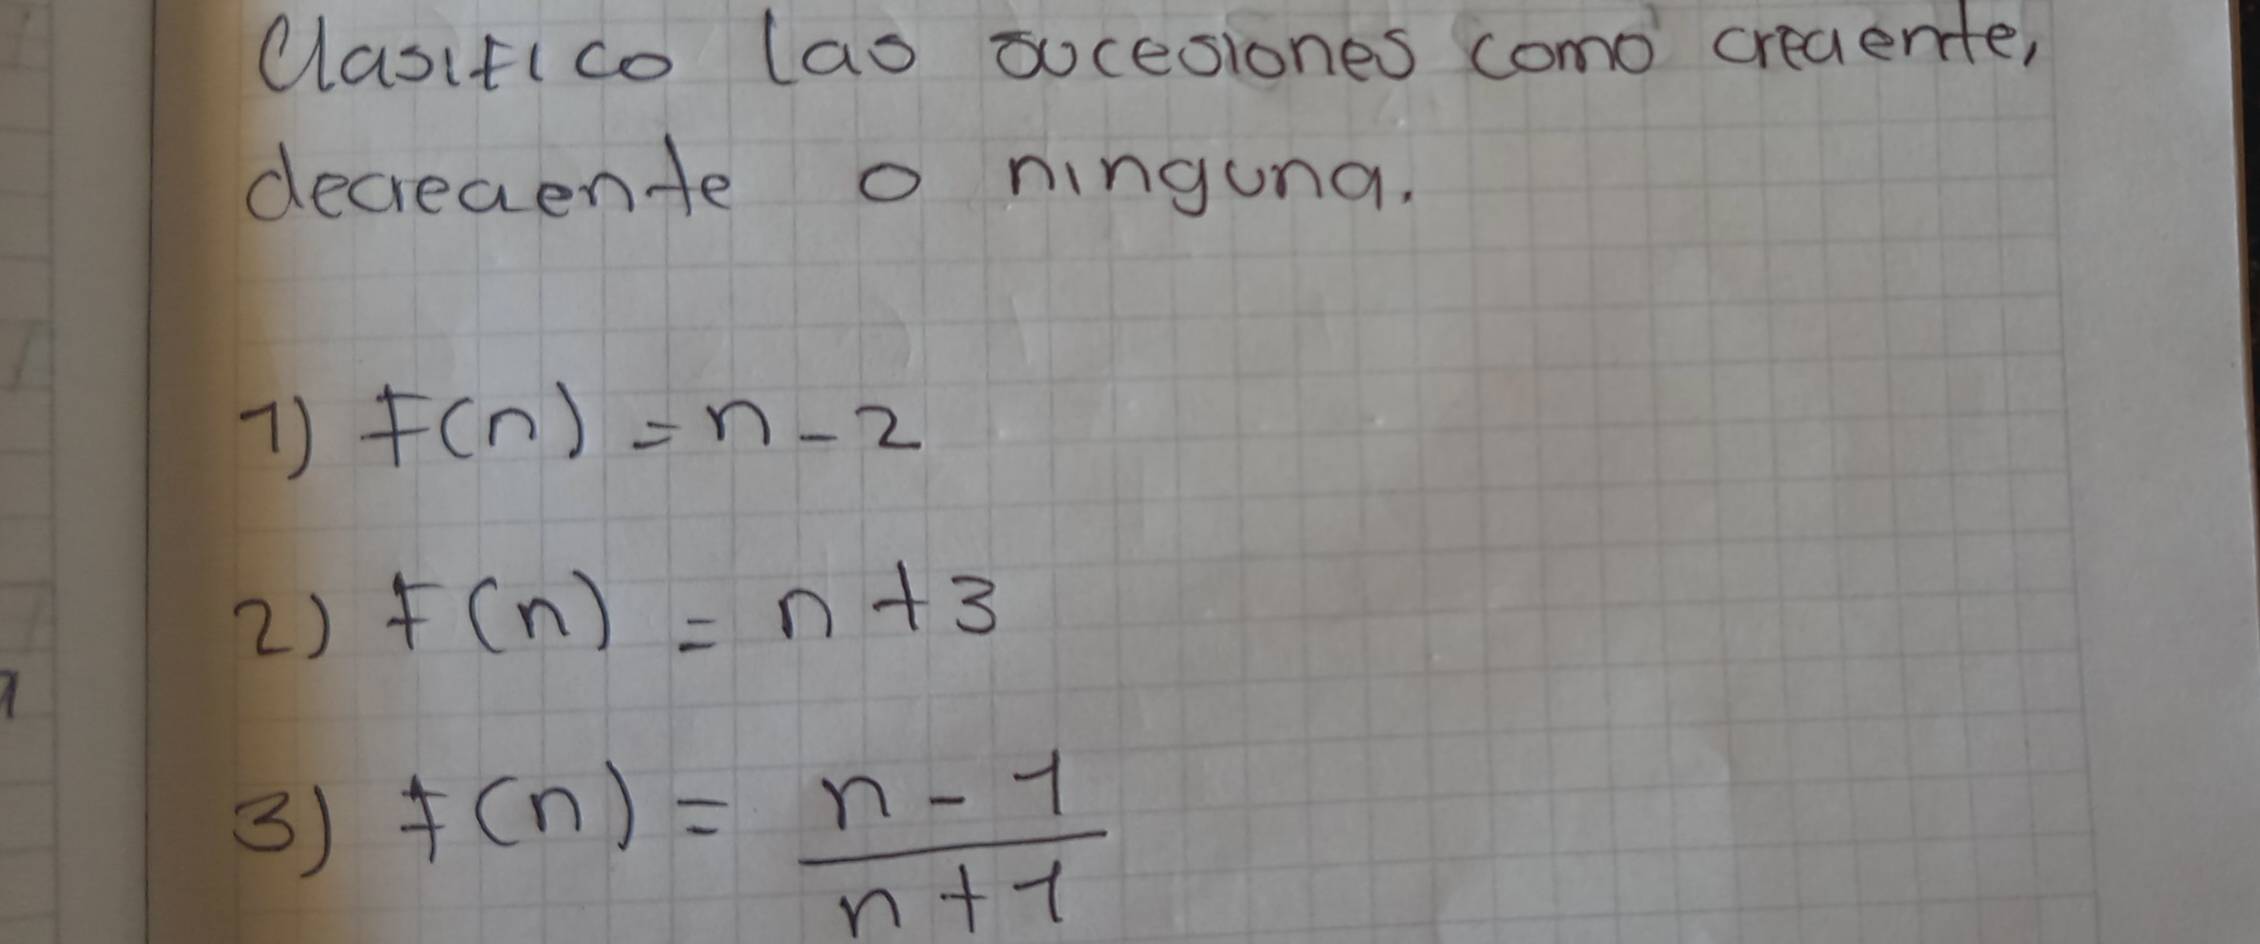 Clasifico las sucesiones como creciente,
decreciente o ninguna.
1) f(n) = n - 2
2) f(n) = n + 3
3) f(n) = n - 1
n + 1